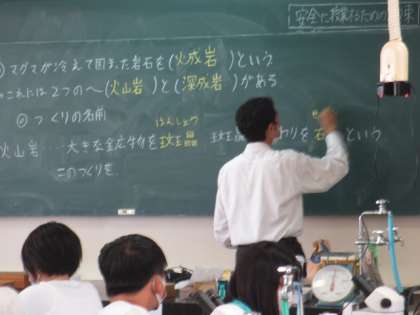 安全に授業をするための約束
マグマが冷えて固まった岩石を(火成岩)という
これには2つの(火山岩)と(深成岩)がある
つくりの名前
はんしょう
火山岩…大きな鉱物を斑晶 斑晶 わりを石 という
このつくりを